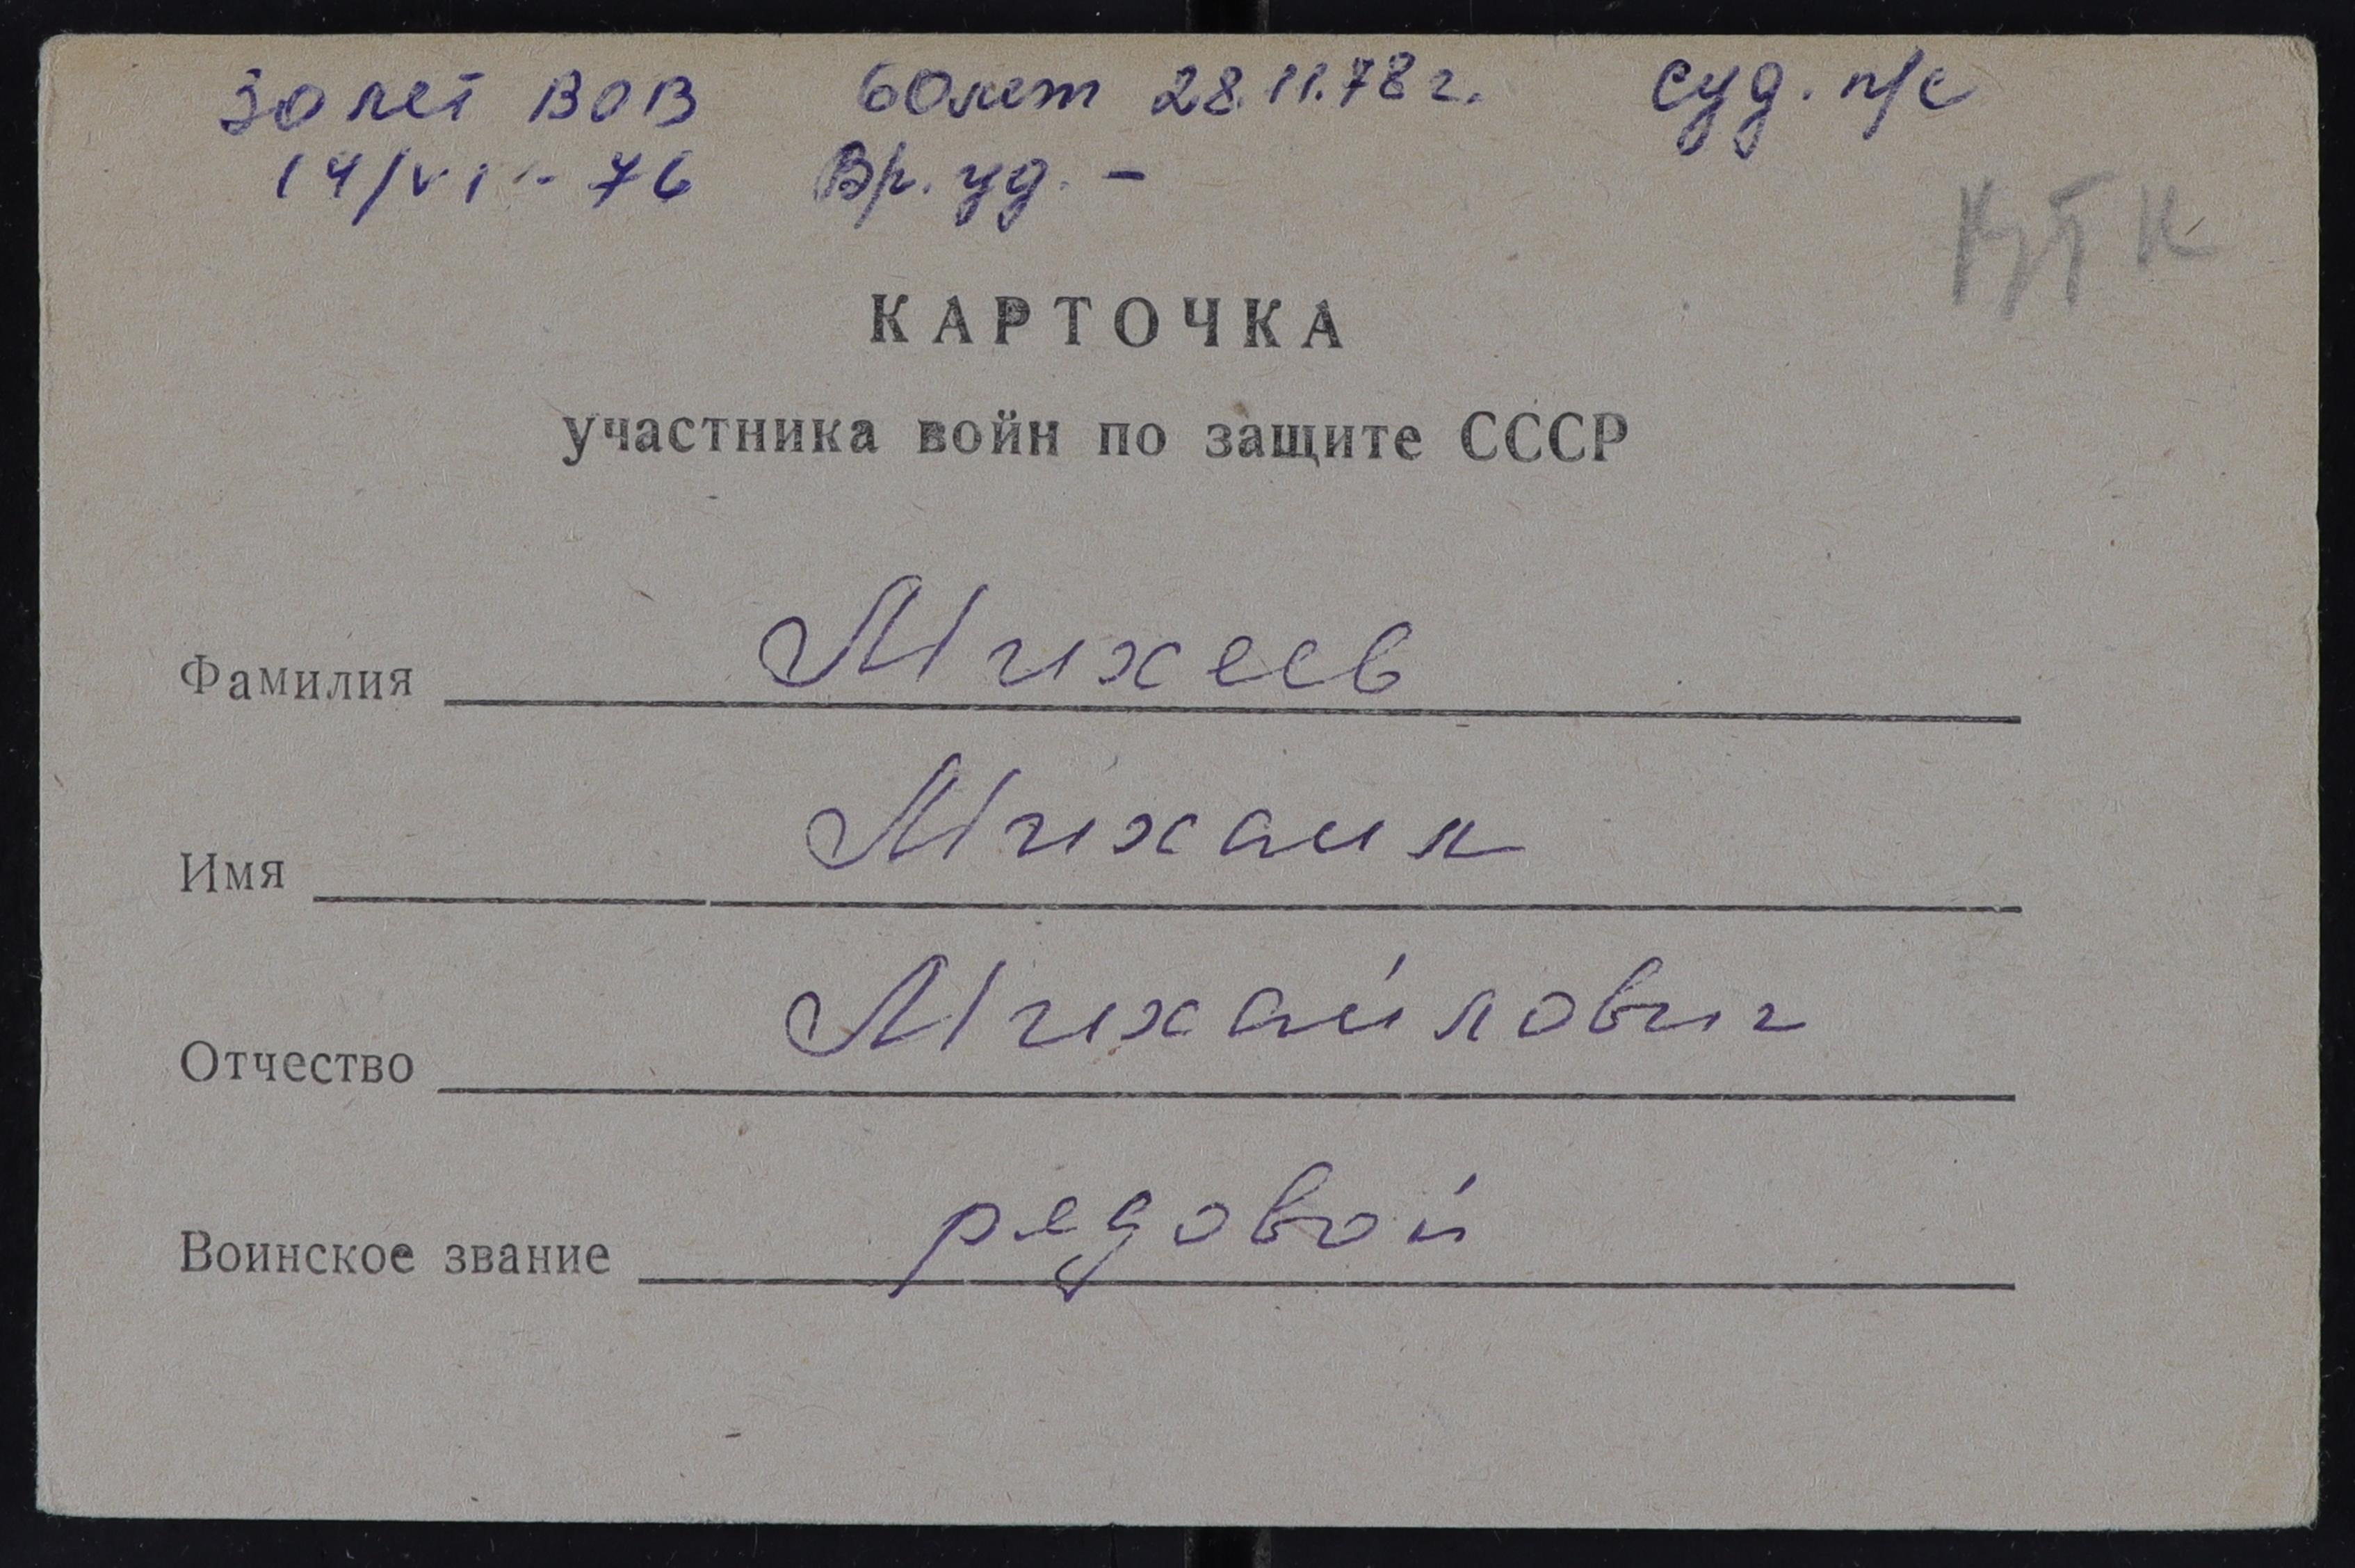 30 лет ВОВ 60 лет 28.11.78 г. Суд. п/с
Вр. уд. -
КАРТОЧКА
участника войн по защите СССР
Фамилия Михеев
Имя Михаил
Отчество Михайлович
Воинское звание рядовой